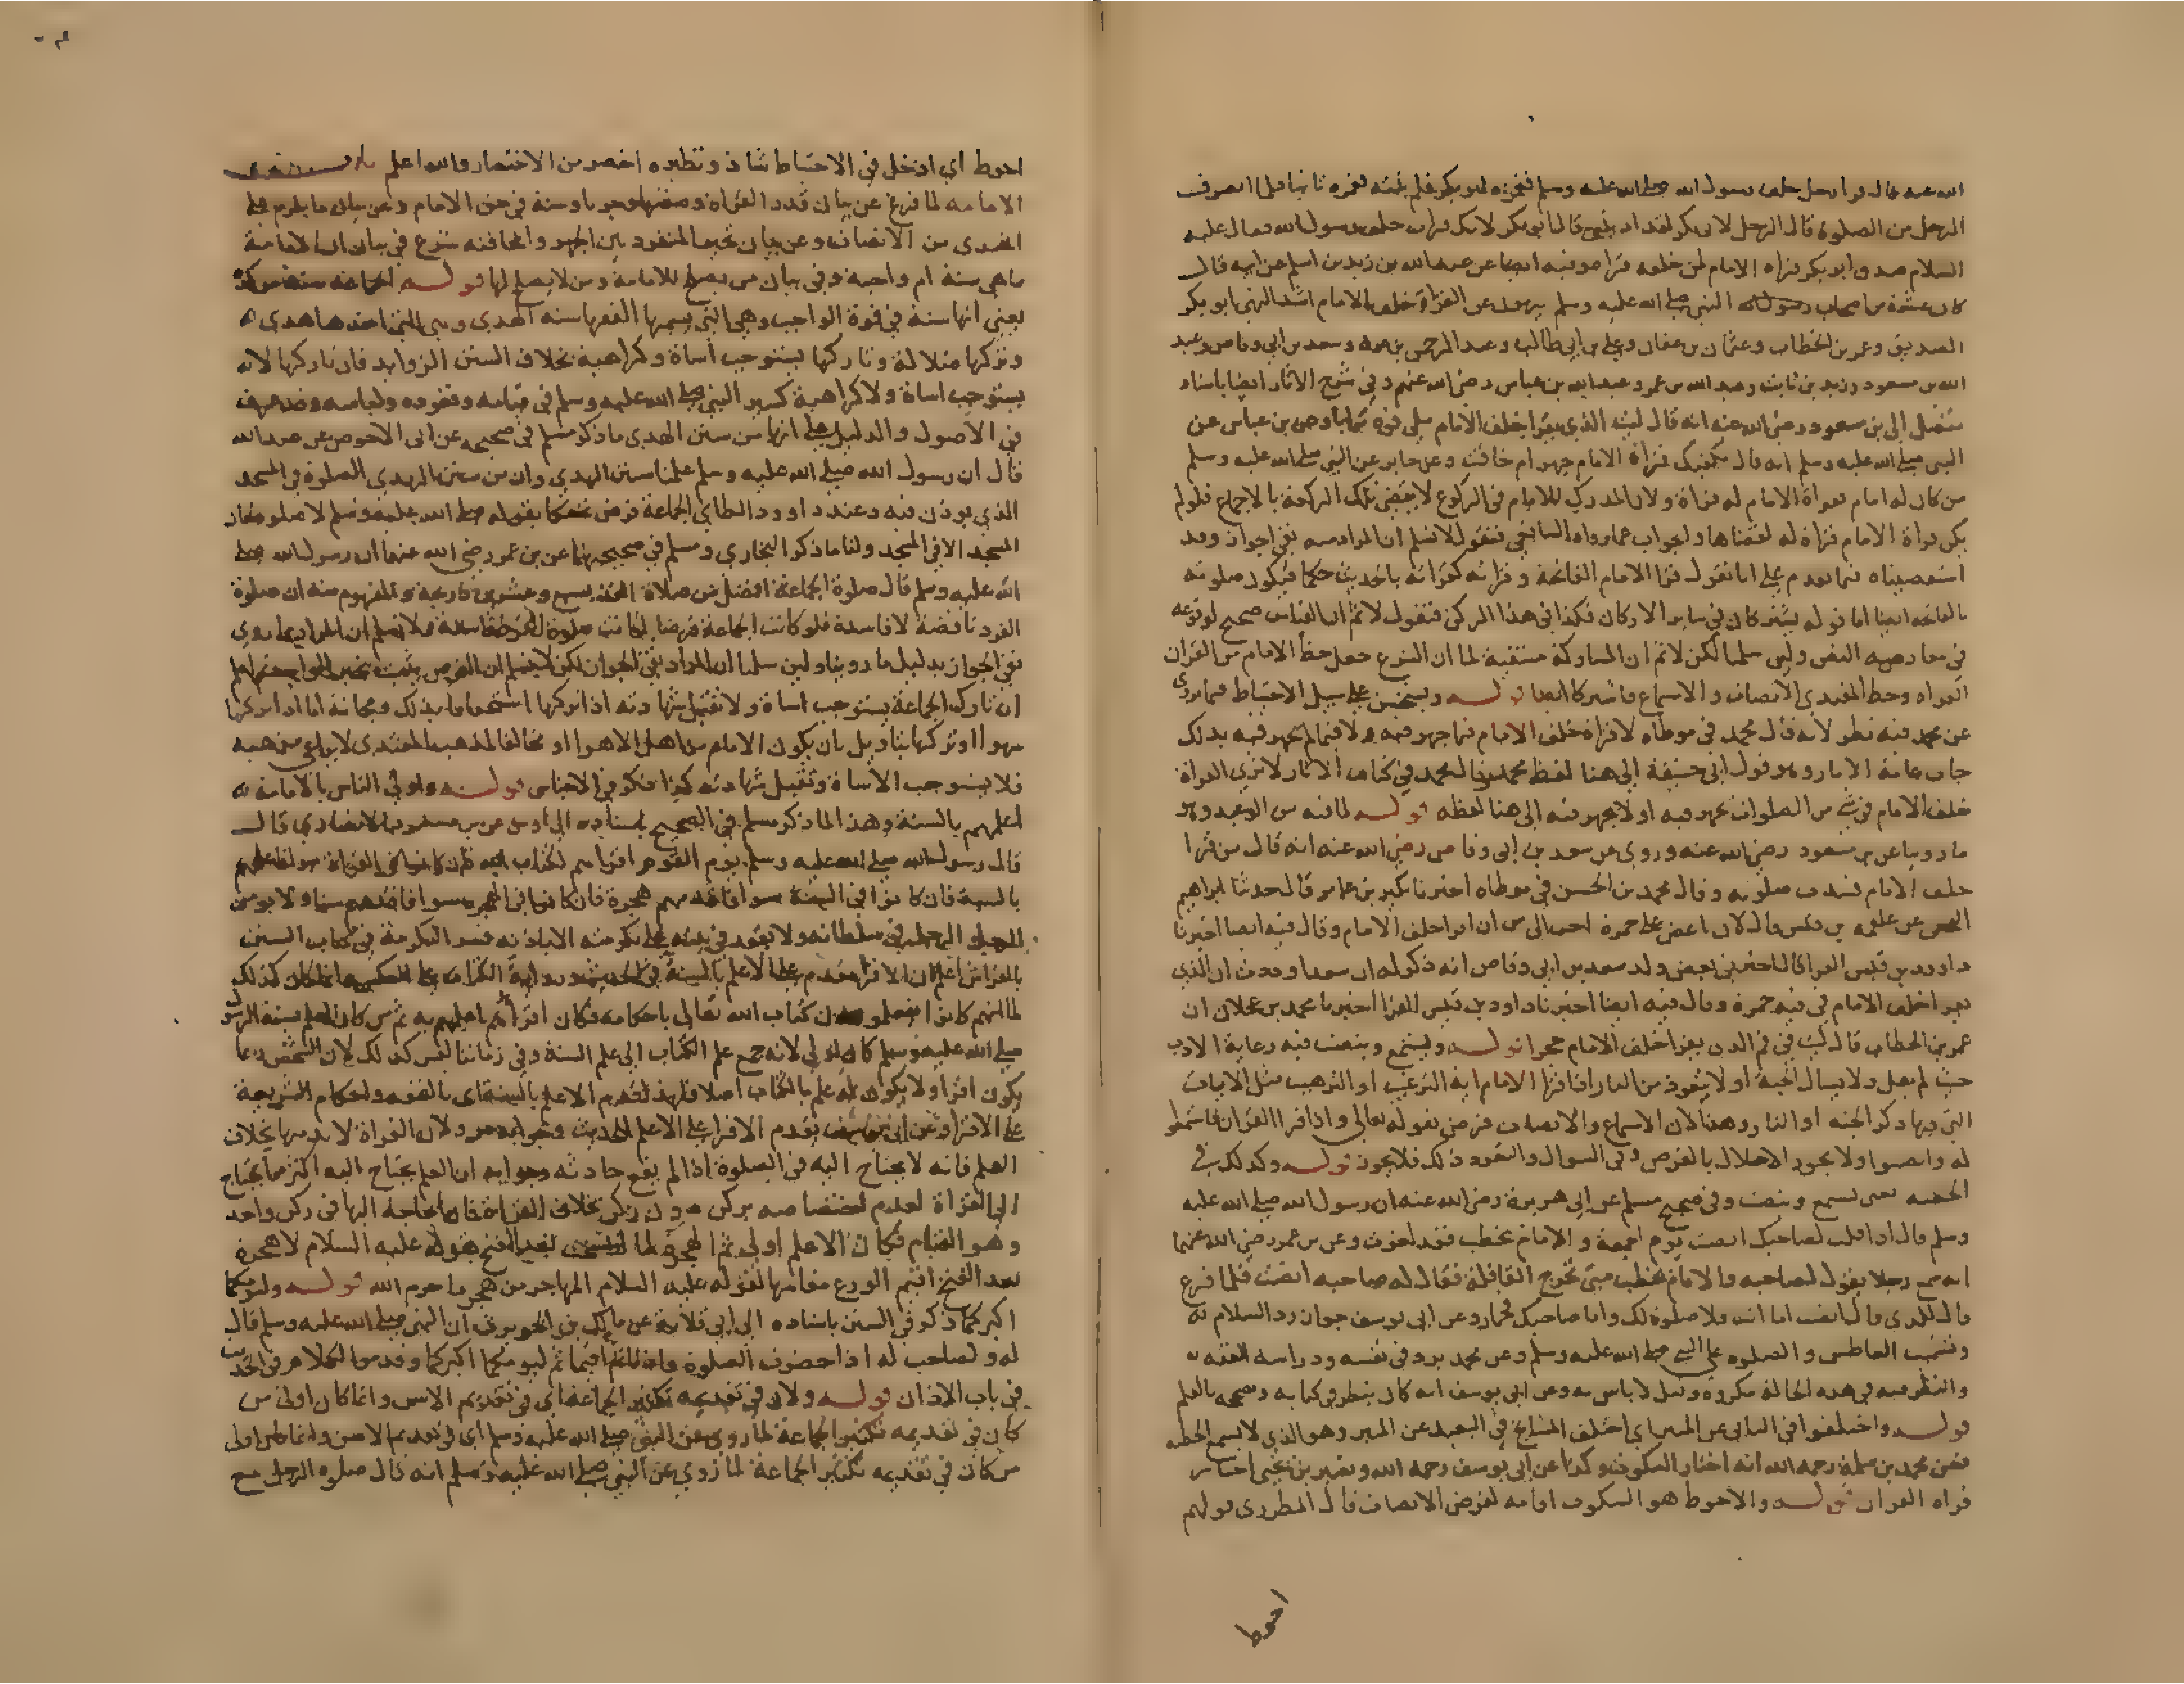 الله عنه قال قرا رجل خلف رسول الله صلى الله عليه وسلم فغمزه ابو بكر فلم ينته فغمزه ثانيا فلما انصرف
الرجل من الصلوة قال الرجل لابى بكر لقد اذيتنى قال ابو بكر لانك قرات خلف رسول الله فقال عليه
السلام صدق ابو بكر قراه الامام لمن خلفه قراه وفيه ايضا عن عبد الله بن زيد بن اسلم عن ابيه قال
كان عشرة من اصحاب رسول الله النبي صلى الله عليه وسلم ينهون عن القراة خلف الامام اشد النهي ابو بكر
الصديق وعمر بن الخطاب وعثمان بن عفان وعلي بن ابي طالب وعبد الرحمن بن عوف وسعد بن ابي وقاص وعبد
الله بن مسعود وزيد بن ثابت وعبد الله بن عمر وعبد الله بن عباس رضي الله عنهم وفي شرح الاثار ايضا باسناد
متصل الى بن مسعود رضي الله عنه انه قال ليت الذي يقرا خلف الامام ملى فوه ترابا وعن بن عباس عن
النبي صلى الله عليه وسلم انه قال تكفيك قراة الامام جهر ام خافت وعن جابر عن النبي صلى الله عليه وسلم
من كان له امام فقراة الامام له قراة ولان المدرك للامام في الركوع لا يقضي تلك الركعة بالاجماع فلو لم
يكن قراة الامام قراة له لقضاها والجواب عما رواه الشافعي فنقول لا نسلم ان المراد منه نفي الجواز وقد
استقصيناه فيما تقدم على انا نقول قرا الامام الفاتحة وقراته كقراته بالحديث حكما فيكون صلوته
بالفاتحة ايضا اما قوله يشتركان في ساير الاركان فكذا في هذا الركن فنقول لا نم ان القياس صحيح لوقوعه
في معارضة النص ولين سلمنا لكن لا نم ان المشاركة منتفية لما ان الشرع جعل حظ الامام من القران
القراه وحظ المقتدي الانصات والاستماع فاشتركا ايضا قوله ويستحسن على سبيل الاحتياط فيما يروى
عن محمد فيه نظر لانه قال محمد في موطاه لا قراة خلف الامام فيما جهر فيه ولا فيما لم يجهر فيه بذلك
جات عامة الاثار وهو قول ابي حنيفة الى هنا لفظ محمد وقال محمد في كتاب الاثار لا نري القراة
خلف الامام في شي من الصلوات يجهر فيه او لا يجهر فيه الى هنا لفظه قوله لما فيه من الوعيد وهو
ما روينا عن بن مسعود رضي الله عنه وروي عن سعد بن ابي وقاص رضي الله عنه انه قال من قرا
خلف الامام فسدت صلوته وقال محمد بن الحسن في موطاه اخبرنا بكير بن عامر قال حدثنا ابراهيم
النخعي عن علقمه بن قيس قال لان اعض على جمرة احب الى من ان اقرا خلف الامام وقال فيه ايضا اخبرنا
داوود بن قيس الفرا قال اخبرني بعض ولد سعد بن ابي وقاص انه ذكر له ان سعدا وددت ان الذي
يقرا خلف الامام في فيه جمرة وقال فيه ايضا اخبرنا داود بن قيس الفرا اخبرنا محمد بن عجلان ان
عمر بن الخطاب قال ليت في فم الذى يقرا خلف الامام حجرا قوله ويستمع وينصت فيه رعاية الادب
حيث لم يقل ولا يسال الجنة او لا يتعوذ من النار اذا قرا الامام اية الترغيب او الترهيب مثل الايات
التي فيها ذكر الجنه او النار وهذا لان الاستماع والانصات فرض بقوله تعالى واذا قرا القران فاستمعوا
له وانصتوا ولا يجوز الاخلال بالفرض وفي السوال والتعوذ ذلك فلا يجوز قوله وكذلك في
الخطبه يعنى يستمع وينصت وفي صحيح مسلم عن ابي هريرة رضي الله عنه ان رسول الله صلى الله عليه
وسلم قال اذا قلت لصاحبك انصت يوم الجمعة والامام يخطب فقد لغوت وعن بن عمر رضي الله عنهما
انه سمع رجلا يقول لصاحبه والامام يخطب متى تخرج القافلة فقال له صاحبه انصت فلما فرغ
قال للذى قال انصت اما انت فلا صلوة لك واما صاحبك فحمار وعن ابي يوسف جواز رد السلام
وتشميت العاطس والصلوه على النبي صلى الله عليه وسلم وعن محمد يرد في نفسه ودراسة الفقه
والنظر فيه في هذه الحالة مكروه وقيل لا باس به وعن ابي يوسف انه كان ينظر في كتابه ويصححه بالقلم
قوله واختلفوا في النائي عن المنبر اي اختلف المشايخ في البعيد عن المنبر وهو الذي لا يسمع الخطبه
فعن محمد بن سلمة رحمه الله انه اختار السكوت وكذا عن ابي يوسف رحمه الله ونصير بن يحيى اختار
قراه القران قوله والاحوط هو السكوت اقامة لفرض الانصات قال المطرزى قولهم
احوط
احوط اي ادخل في الاحتياط شاذ ونظيره اخصر من الاختصار والله اعلم باب
الامامه لما فرغ عن بيان قدر القراة وصفتها وجوبا وسنة في حق الامام وعن بيان ما يلزم على
المقتدى من الانصات وعن بيان تخيير المنفرد بين الجهر والمخافتة شرع في بيان ان الامامة
ما هي سنة ام واجبة وفي بيان من يصلح للامامة ومن لا يصلح لها قوله الجماعة سنة موكدة
يعني انها سنة في قوة الواجب وهي التي يسميها الفقها سنه الهدى وهي التي اخذها هدى
وتركها ضلالة وتاركها يستوجب اساة وكراهية بخلاف السنن الزوايد فان تاركها لا
يستوجب اساة ولا كراهية كسير النبي صلى الله عليه وسلم في قيامه وقعوده ولباسه وقد عرف
في الاصول والدليل على انها من سنن الهدى ما ذكر مسلم في صحيحه عن ابى الاحوص عن عبد الله
قال ان رسول الله صلى الله عليه وسلم علمنا سنن الهدي وان من سنن الهدي الصلوة في المسجد
الذي يوذن فيه وعند داوود الطاي الجماعة فرض تمسكا بقوله صلى الله عليه وسلم لا صلوة لجار
المسجد الا في المسجد ولنا ما ذكر البخاري ومسلم في صحيحيهما عن بن عمر رضي الله عنهما ان رسول الله صلى
الله عليه وسلم قال صلوة الجماعة افضل من صلاة الفذ بسبع وعشرين درجة والمفهوم منه ان صلوة
الفرد ناقصة لا فاسدة فلو كانت الجماعة فرضا لكانت صلوة الفرد فاسدة ولا نسلم ان المراد بما روي
نفي الجواز بدليل ما روينا ولين سلمنا ان المراد نفي الجواز لكن لا نسلم ان الفرض يثبت بخبر الواحد ثم اعلم
ان تارك الجماعة يستوجب اساة ولا تقبل شهادته اذا تركها استخفافا بذلك ومجانة اما اذا تركها
سهوا او تركها بتاويل بان يكون الامام من اهل الاهوا او مخالفا لمذهب المقتدى لا يراعي مذهبه
فلا يستوجب الاساة وتقبل شهادته كذا ذكر في الاجناس قوله واولى الناس بالامامة
اعلمهم بالسنة وهذا لما ذكر مسلم في الصحيح باسناده الى اوس عن بن مسعود الانصاري قال
قال رسول الله صلى الله عليه وسلم يوم القوم اقراهم لكتاب الله فان كانوا في القراة سوا فاعلمهم
بالسنة فان كانوا في السنة سوا فاقدمهم هجرة فان كانوا في الهجرة سوا فاقدمهم سنا ولا يومن
الرجل الرجل في سلطانه ولا يقعد في بيته على تكرمته الا باذنه فسر التكرمة في كتاب السنن
بالفراش اعلم ان الاقرا مقدم على الاعلم بالسنة في الحديث وروايه الكتاب على العكس وانما كان كذلك
لما انهم كانوا يتعلمون كتاب الله تعالى باحكامه فكان اقراهم اعلمهم به ثم من كان اعلم بسنة الرسول
صلى الله عليه وسلم كان اولى لانه جمع علم الكتاب الى علم السنة وفي زماننا ليس كذلك لان الشخص ربما
يكون اقرا ولا يكون له علم بالكتاب اصلا فلهذا تقدم الاعلم بالسنة اى بالفقه واحكام الشريعة
على الاقرا وعن ابي يوسف يقدم الاقرا على الاعلم للحديث وجوابه مر ولان القراة لا بد منها بخلاف
العلم فانه لا يحتاج اليه في الصلوة اذا لم يقع حادثه وجوابه ان العلم يحتاج اليه اكثر مما يحتاج
الى القراة لعدم اختصاصه بركن دون ركن بخلاف القراة فان الحاجة اليها في ركن واحد
وهو القيام فكان الاعلم اولى ثم الهجرة لما انتسخت بعد الفتح بقوله عليه السلام لا هجرة
بعد الفتح اقيم الورع مقامها لقوله عليه السلام المهاجر من هجر ما حرم الله قوله وليومكما
اكبركما ذكر في السنن باسناده الى ابي قلابة عن مالك بن الحويرث ان النبي صلى الله عليه وسلم قال
له ولصاحب له اذا حضرت الصلوة فاذنا ثم اقيما ثم ليومكما اكبركما وقد مر الكلام في الحديث
في باب الاذان قوله ولان في تقديمه تكثير الجماعة اي في تقديم الاسن وانما كان اولى من
كان في تقديمه تكثير الجماعة لما روي عن النبي صلى الله عليه وسلم اى في تقديم الاسن وانما كان اولى
من كان في تقديمه تكثير الجماعة لما روي عن النبي صلى الله عليه وسلم انه قال صلوه الرجل مع